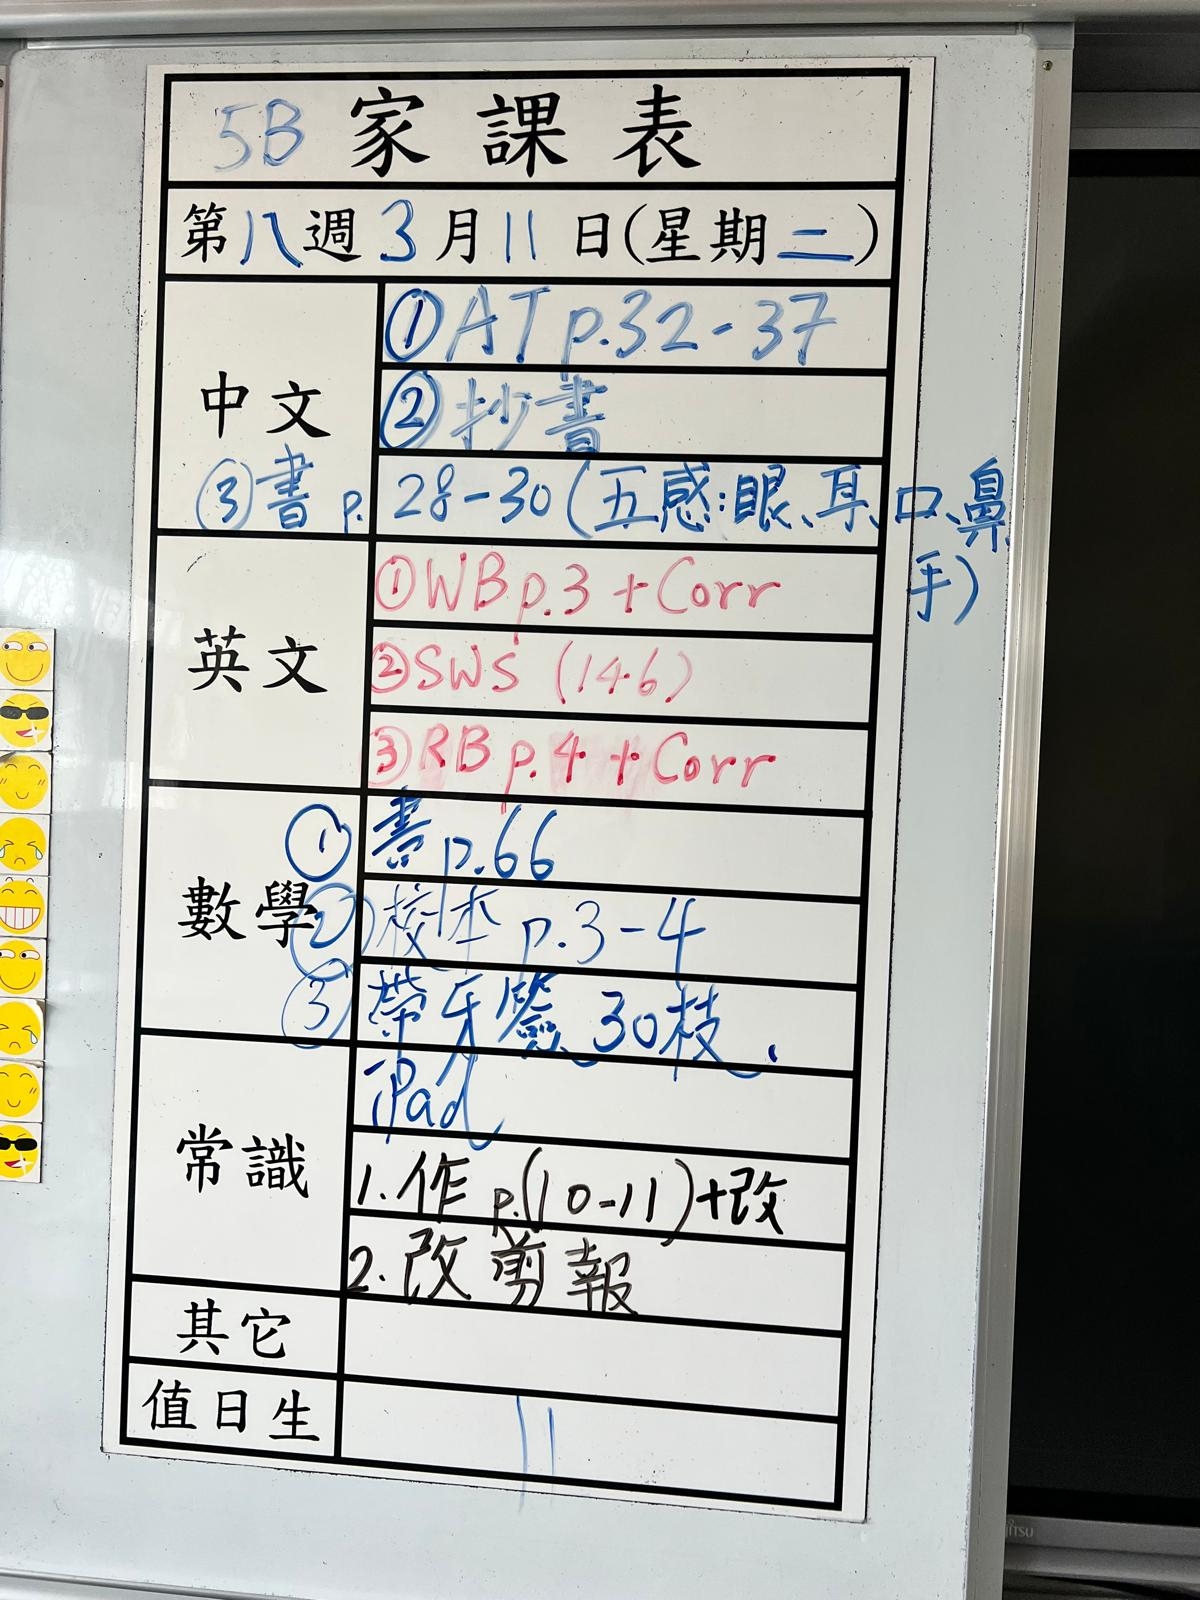 5B 家課表
第八週3月11日(星期二)
中文
①AT p.32-37
②抄書
③書 p. 28-30(五感:眼、耳、口、鼻、
手)
英文
①WB p.3 + Corr
②SWS (146)
③RB p.4 + Corr
數學
①書p.66
②校本 p.3-4
③帶牙籤30枝、
iPad
常識
1.作 p.(10-11)+改
2.改剪報
其它
值日生
11